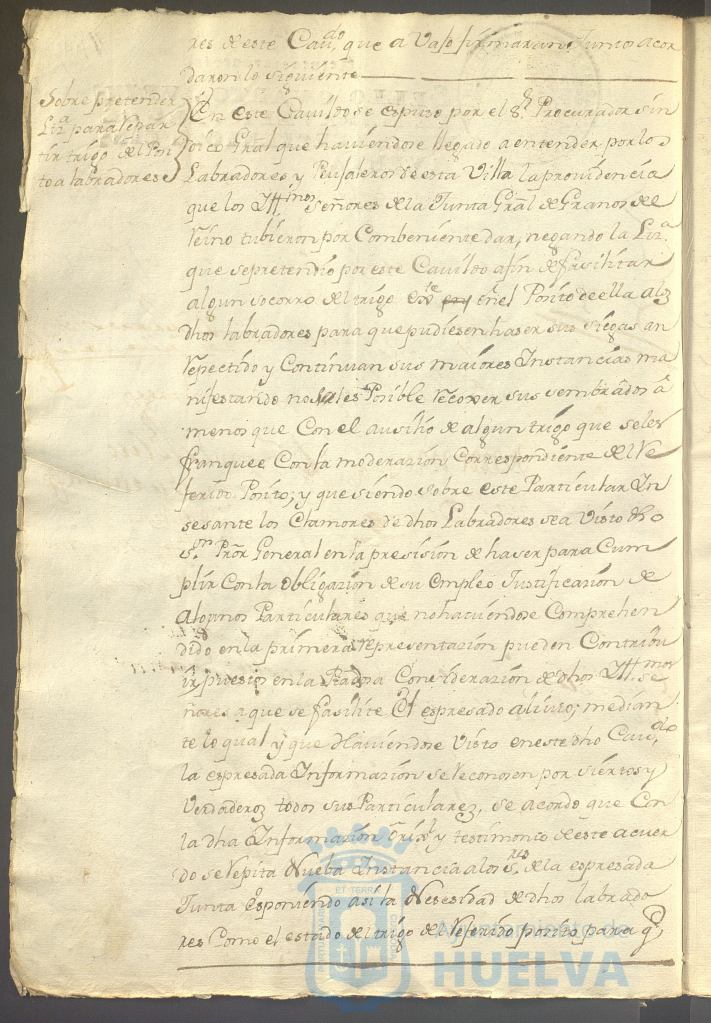 res de este Cav.do que a vajo firmaran Juntos acor
daron lo siguiente
Sobre pretender
Liz.a para repar
tir trigo del Posi
to a labradores
En este Cavildo se espuso por el S.r Procurador sin
dico Gral que haviendose llegado a entender por los
Labradores y Pelsaleros de esta Villa la providencia
que los Ill.mos Señores de la Junta Gral de Granos del
Reino tubieron por Combeniente dar, negando la Liz.a
que se pretendio por este Cavildo afin de facilitar
algun socorro del trigo en el Posito de ella alos
dhos labradores para que pudiesen haser sus siegas an
repectido y Continuan sus maiores Instancias ma
nifestando no serles Posible recojer sus sembrados a
menos que Con el ausilio de algun trigo que seles
franquee Con la moderazion Correspondiente del Re
ferido Posito; y que siendo sobre este Particular In
sesante los Clamores de dhos Labradores sea visto dho
S.or Pror General en la presision de haser para Cum
plir Con la obligazion de su Empleo Justificazion de
algunos Particulares que no haviendose Comprehen
dido en la primera representazion pueden Contribu
ir puestos en la Consiiderazion de dhos Ill.mos Se
ñores a que se facilite El espresado alivio; median
te lo qual y que Haviendose Visto en este dho Cav.do
la espresada Informazion se reconosen por siertos y
Verdaderoz todos sus Particularez, se acordo que Con
la dha Informazion Oríxl y testimonio de este acuer
do se repita Nueba Instancia alos S.res de la espresada
Junta Esponiendo asi la Nesesidad de dhos labrado
res Como el estado del trigo del referido posito para q.e
Ayuntamiento de
HUELVA